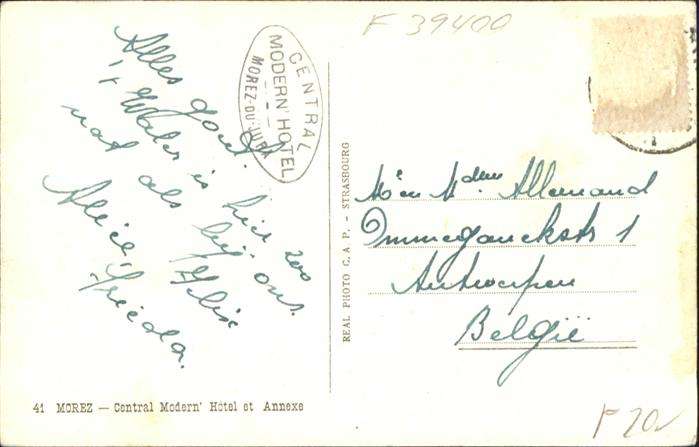 F 39400
Alles goed.
't Water is hier zoo
nat als bij ons.
Alice, Felix
Frieda.
CENTRAL
MODERN' HOTEL
MOREZ-DU-JURA
REAL PHOTO C. A. P. - STRASBOURG
Mr en Mdem Allemand
Ommeganckstr 1
Antwerpen
België
41 MOREZ — Central Modern' Hôtel et Annexe
F 20